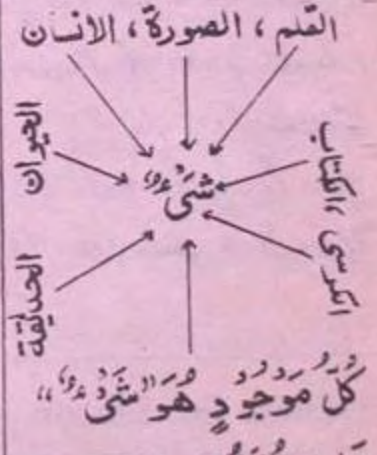 القلم ، الصورة ، الانسان
الحيوان
شَىْءٌ
الكتاب ،
الكرسى
الحديقة
كُلُّ مَوْجُودٍ هُوَ "شَىْءٌ"